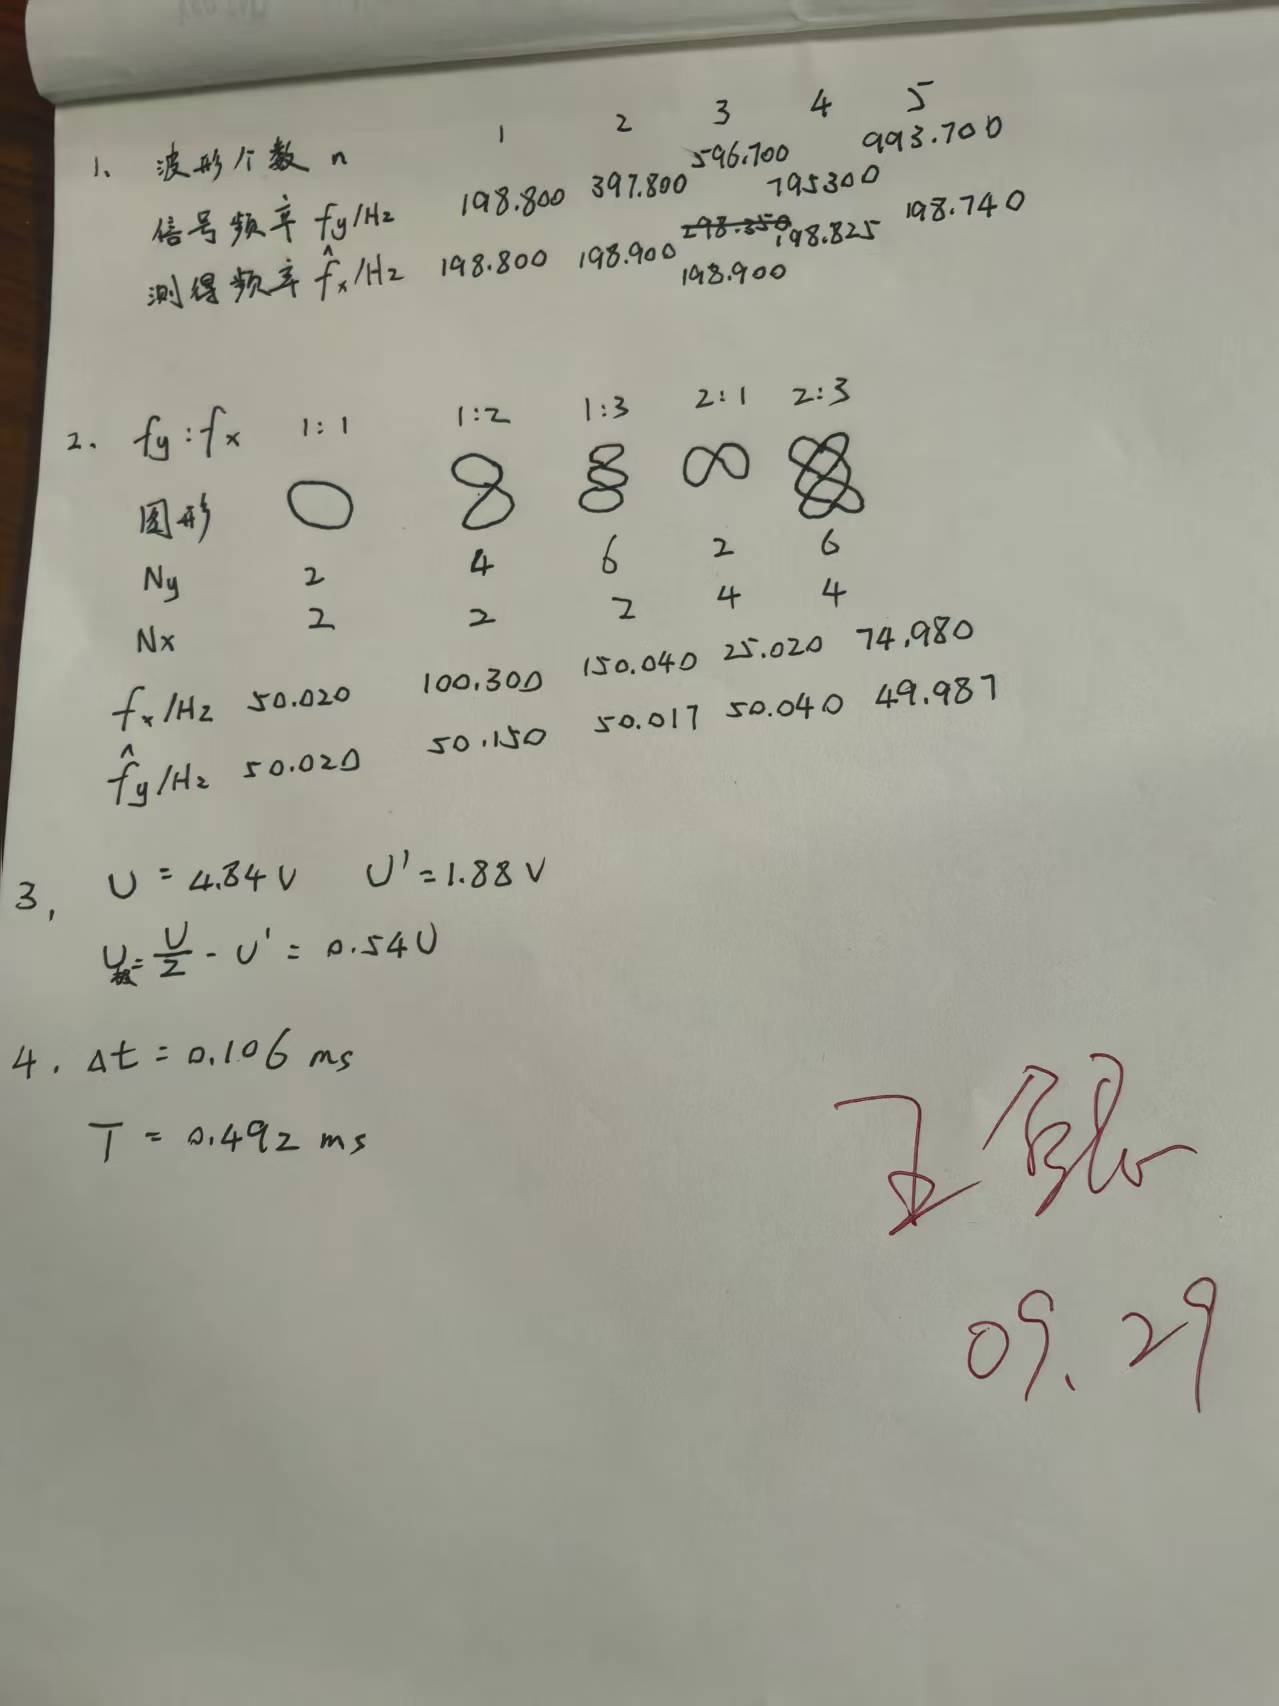 1、 波形个数 n 1 2 3 4 5
信号频率 fy/Hz 198.800 397.800 596.700 795300 993.700
测得频率 f̂x/Hz 198.800 198.900 298.350 198.900 198.825 198.740
2. fy:fx 1:1 1:2 1:3 2:1 2:3
图形
Ny 2 4 6 2 6
Nx 2 2 2 4 4
fx/Hz 50.020 100.300 150.040 25.020 74.980
f̂y/Hz 50.020 50.150 50.017 50.040 49.987
3, U = 4.84V U' = 1.88V
U板 = U/2 - U' = 0.54V
4. Δt = 0.106 ms
T = 0.492 ms
09.29